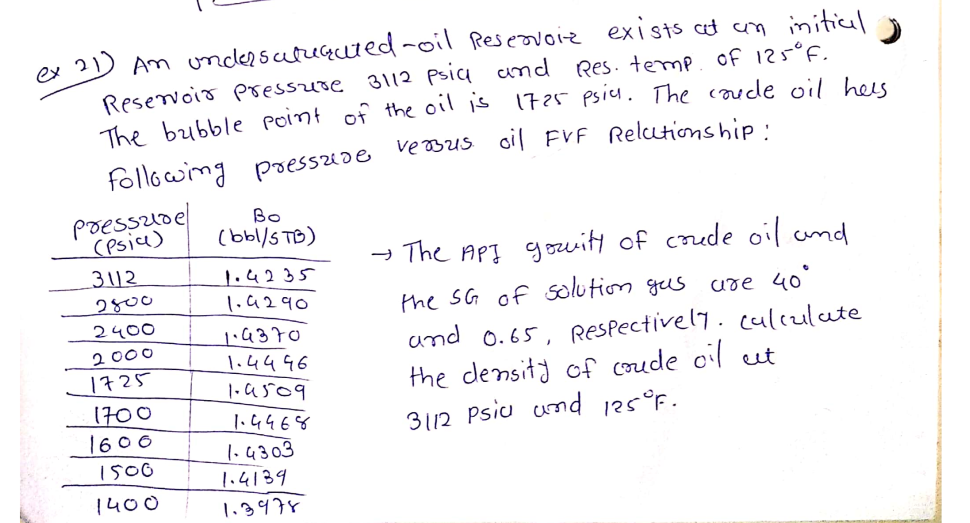 ex 21) An undersaturated-oil Reservoir exists at an initial
Reservoir pressure 3112 Psia and Res. temp. of 125°F.
The bubble point of the oil is 1725 psia. The crude oil has
following pressure versus oil FVF Relationship:
pressure (psia) Bo (bbl/STB)
3112 1.4235
2800 1.4290
2400 1.4370
2000 1.4446
1725 1.4509
1700 1.4468
1600 1.4303
1500 1.4139
1400 1.3978
→ The API gravity of crude oil and
the SG of solution gas are 40°
and 0.65, Respectively. calculate
the density of crude oil at
3112 Psia and 125°F.